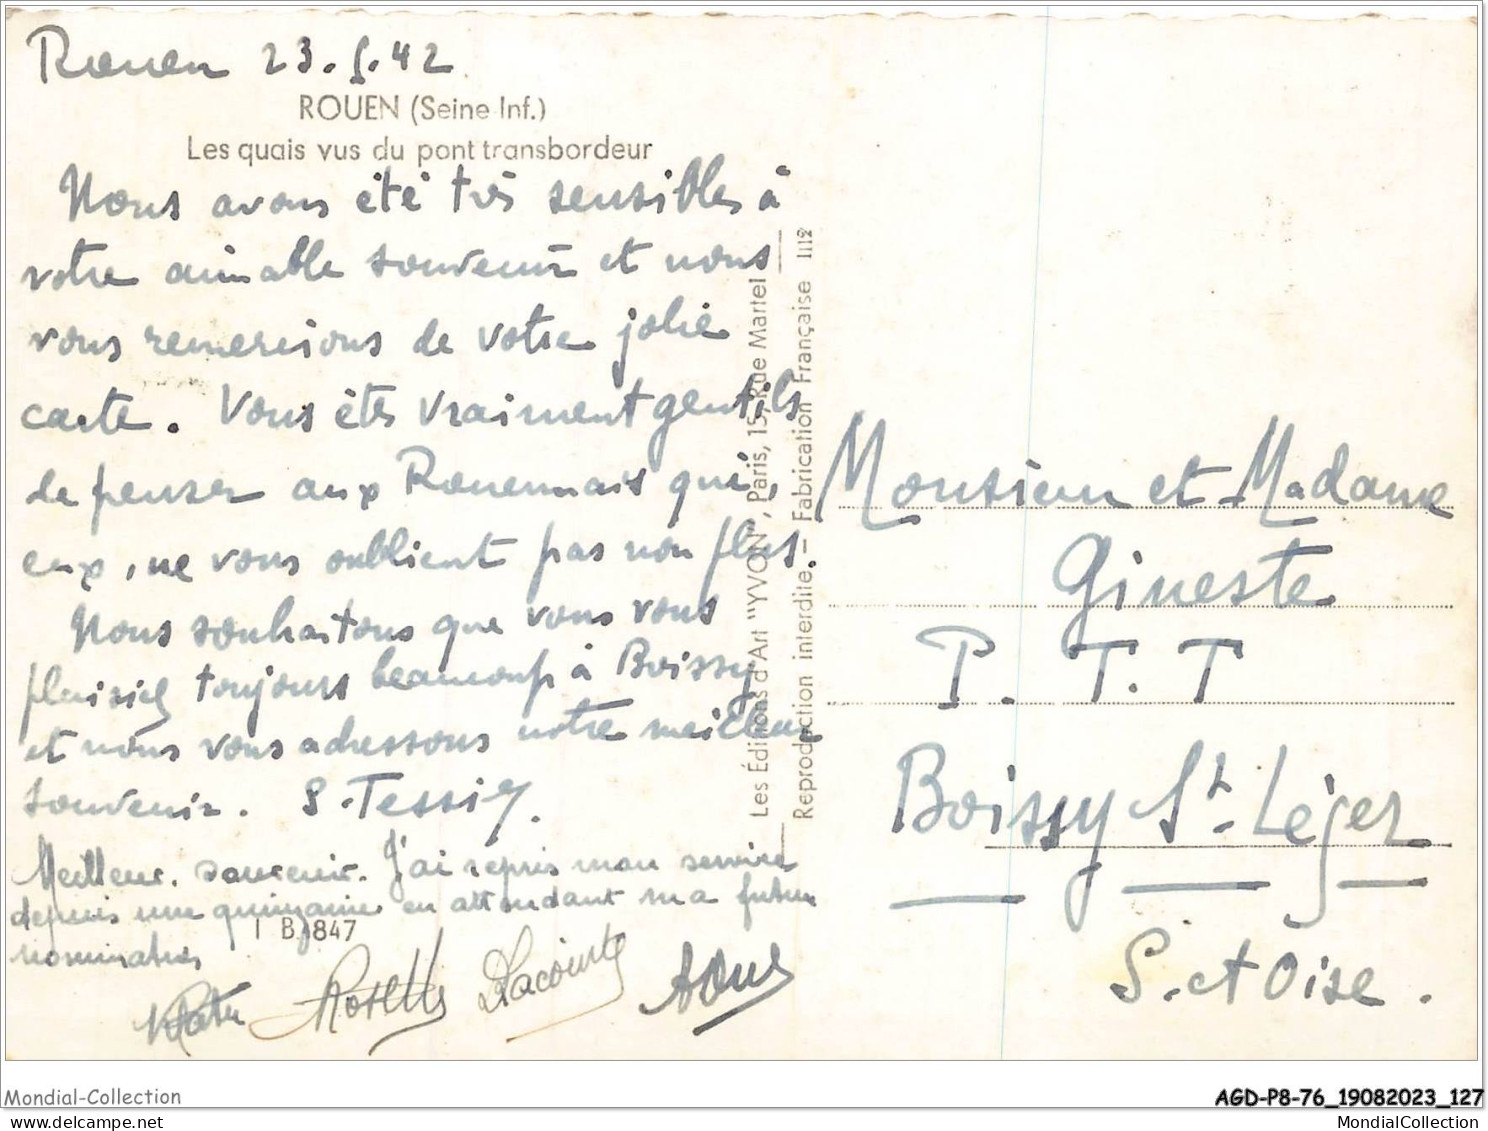 Rouen 23.5.42
ROUEN (Seine-Inf.)
Les quais vus du pont transbordeur
Nous avons été très sensibles à
votre aimable souvenir et nous
vous remercions de votre jolie
carte. Vous êtes vraiment gentils
de penser aux Rouennais qui,
eux, ne vous oublient pas non plus.
Nous souhaitons que vous vous
plaisiez toujours beaucoup à Boissy
et nous vous adressons notre meilleur
souvenir. S. Tessier.
Meilleur souvenir. J'ai repris mon service
depuis une quinzaine en attendant ma future
nomination
I B 847
Lacointe
Les Éditions d'Art "YVON", Paris, 15, Rue Martel
Reproduction interdite. — Fabrication Française 1112
Monsieur et Madame
Gineste
P.T.T
Boissy St. Léger
S. et Oise.
Mondial-Collection
AGD-P8-76_19082023_127
delcampe.net
MondialCollection